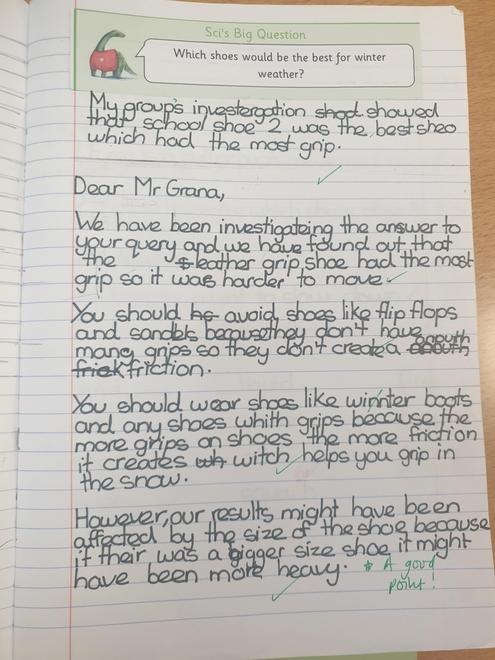 Sci's Big Question
Which shoes would be the best for winter
weather?
My group's investergation shoot showed
that school shoe 2 was the best sheo
which had the most grip.
Dear Mr Grana,
We have been investigateing the answer to
your query and we have found out that
the leather grip shoe had the most
grip so it was harder to move
You should he avoid shoes like flip flops
and sandels becausethey don't have
many grips so they don't create a enouth
frick friction.
You should wear shoes like winnter boots
and any shoes whith grips because the
more grips on shoes the more friction
it creates wh witch helps you grip in
the snow.
However, our results might have been
affected by the size of the shoe because
if their was a bigger size shoe it might
have been more heavy. * A good
point!